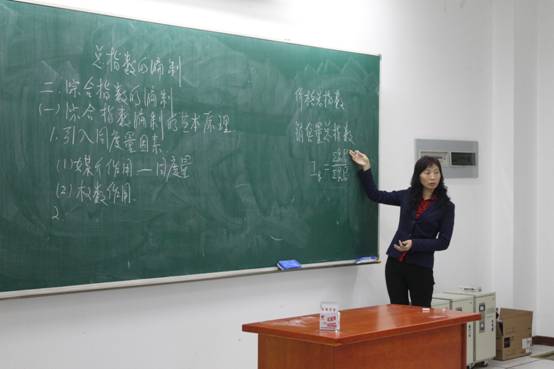 总指数的编制
二.综合指数的编制
(一)综合指数编制的基本原理
1.引入同度量因素.
(1)媒介作用—同度量
(2)权数作用.
2
价格总指数
销售量总指数